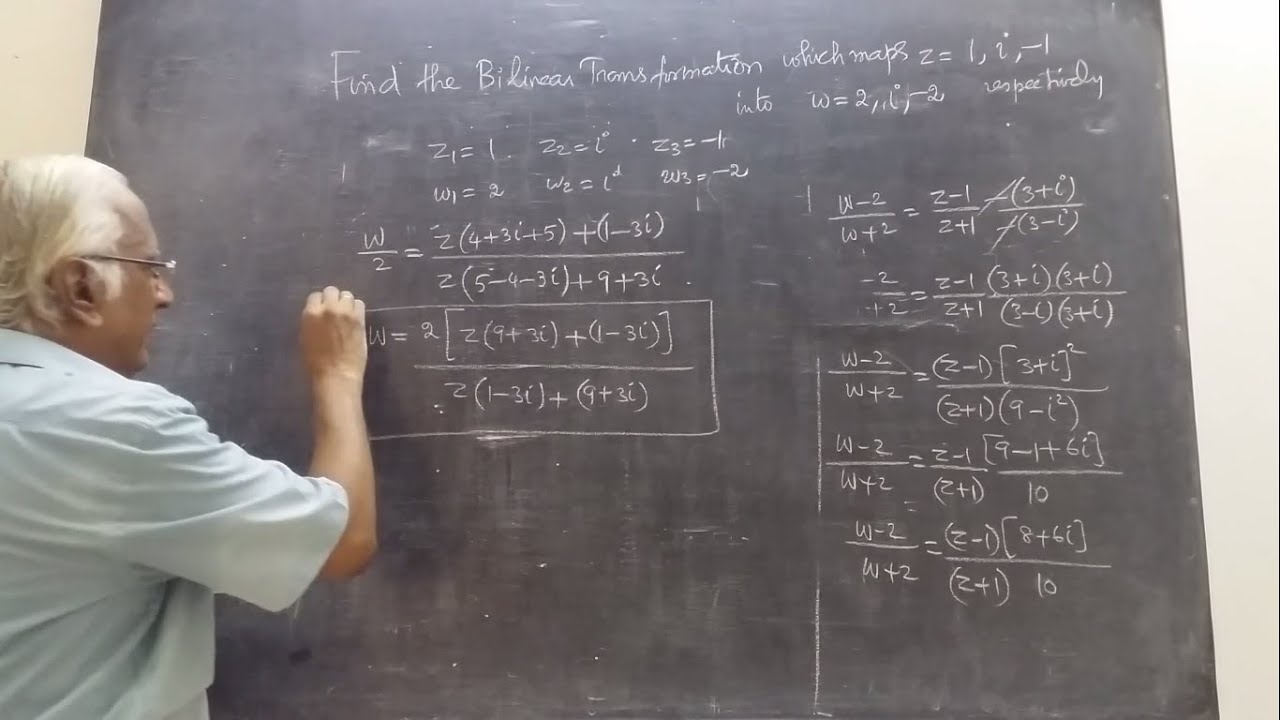 Find the Bilinear Transformation which maps z = 1, i, -1
into w = 2, i, -2 respectively
z₁ = 1. z₂ = i z₃ = -1
w₁ = 2 w₂ = i w₃ = -2
w/2 = (z(4+3i+5) + (1-3i))/(z(5-4-3i) + 9+3i)
w = 2[z(9+3i) + (1-3i)]/(z(1-3i) + (9+3i))
(w-2)/(w+2) = (z-1)/(z+1) -(3+i)/-(3-i)
-2/+2 = (z-1)/(z+1) (3+i)(3+i)/(3-i)(3+i)
(w-2)/(w+2) = (z-1)[3+i]²/(z+1)(9-i²)
(w-2)/(w+2) = (z-1)/(z+1) [9-1+6i]/10
(w-2)/(w+2) = (z-1)[8+6i]/(z+1) 10